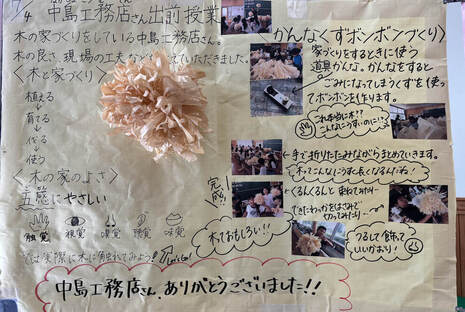 7/4 中島工務店さん出前授業
木の家づくりをしている中島工務店さん。
木の良さ、現場の工夫など
ていただきました。
<木と家づくり>
植える
↓
育てる
↓
伐る
↓
使う
<木の家のよさ>
五感にやさしい
触覚 視覚 嗅覚 聴覚 味覚
では実際に木に触れてみよう!
Let's Go!
かんなくずボンボンづくり>
家づくりをするときに使う
道具かんな。かんなをすると
ごみになってしまうくずを使っ
てボンボンを作ります。
これ本当に木??
こんなにうすいのに!?
←手で折りたたみながらまとめていきます。
木ってこんなにうすく長くなるんだね!
くるんくるんと
できたわっかをはさみで
切ってみたり…
完成!!
木っておもしろい!!
つるして飾って
いいかおり!
中島工務店さん、ありがとうございました!!